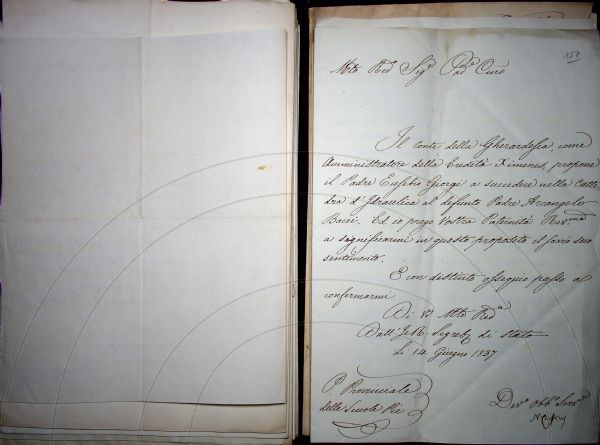 157
Mto Redo Sigr Pad.e Onio
Il conte della Gherardesca, come
Amministratore della Eredità Ximenes, propone
il Padre Eusebio Giorgi a succedere nella Catte
dra d'Idraulica al defunto Padre Arcangelo
Bacci. Ed io prego Vostra Paternità Rev.ma
a significarmi in questo proposito il savio suo
sentimento.
E con distinto ossequio passo al
confermarmi
Di V. Mto Redo
Dall'I e R. Segreta di Stato
Li 14 Giugno 1837
P. Provinciale
delle Scuole Pie
Devo Obbo Servo